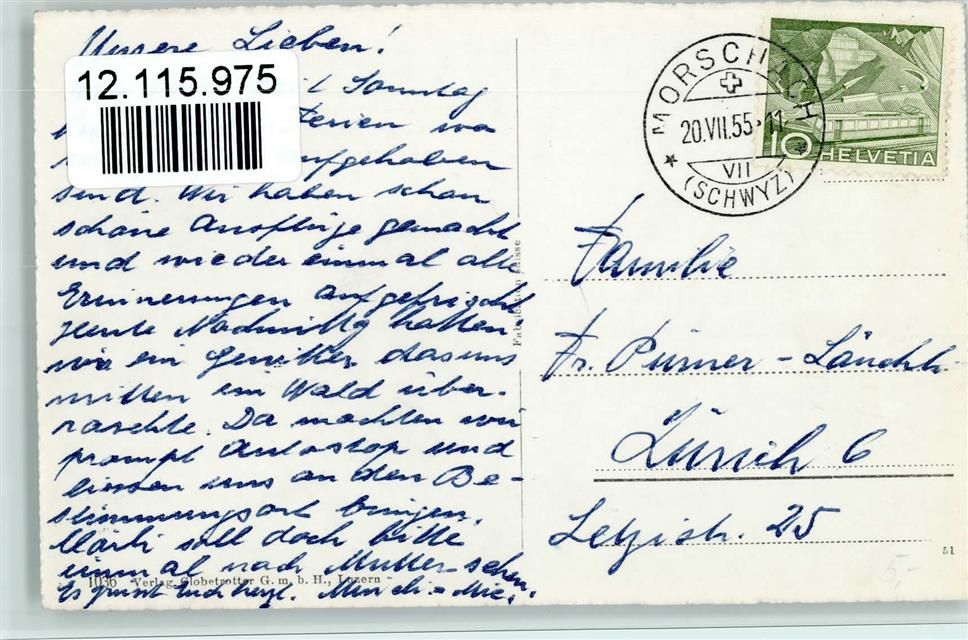 Unsere Lieben!
12.115.975
Sonntag
Ferien wo
aufgehoben
sind. Wir haben schon
schöne Ausflüge gemacht
und wieder einmal alte
Erinnerungen aufgefrischt
Heute Nachmittg hatten
wir ein Gewitter das uns
mitten im Wald über-
raschte. Da machten wir
prompt Autostop und
liessen uns an den Be-
stimmungsort bringen.
Märti soll doch bitte
einmal nach Mutter sehen
Es grüsst Euch herzl.
1036 Verlag Globetrotter G. m. b. H., Luzern
Fabrication Suisse
MORSCHACH
20.VII.55-11
VII
(SCHWYZ)
10 HELVETIA
Familie
Fr. Pürner - Länchli
Zürich 6
Letzistr. 25
51